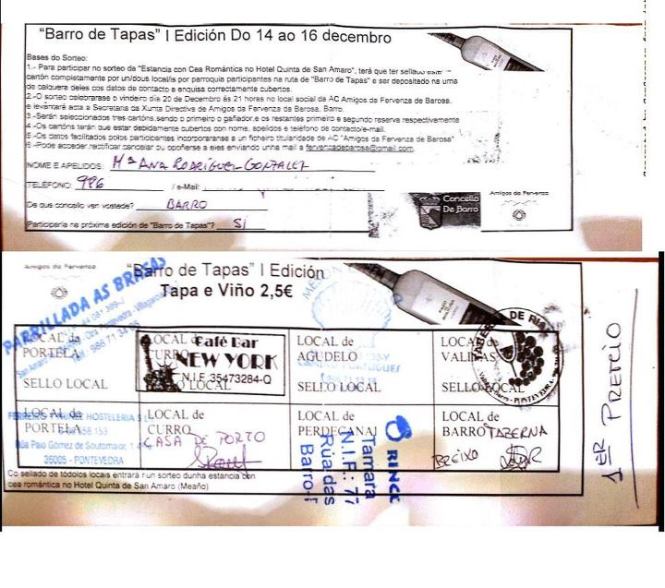 "Barro de Tapas" I Edición Do 14 ao 16 decembro
Bases do Sorteo:
1.- Para participar no sorteo da "Estancia con Cea Romántica no Hotel Quinta de San Amaro", terá que ter sellado este
cartón completamente por un/dous local/is por parroquia participantes na ruta de "Barro de Tapas" e ser depositado na urna
de calquera deles cos datos de contacto e enquisa correctamente cubertos.
2.-O sorteo celebrarase o vindeiro día 20 de Decembro ás 21 horas no local social da AC Amigos da Fervenza de Barosa,
e levantará acta a Secretaria da Xunta Directiva de Amigos da Fervenza da Barosa, Barro.
3.-Serán seleccionados tres cartóns,sendo o primeiro o gañador,e os restantes primeiro e segundo reserva respectivamente
4.-Os cartóns terán que estar debidamente cubertos con nome, apelidos e teléfono de contacto/e-mail.
5.-Os datos facilitados polos participantes incorporaranse a un ficheiro titularidade de AC "Amigos da Fervenza da Barosa"
6.-Pode acceder,rectificar,cancelar ou opoñerse a eles enviando unha mail a fervenzadebarosa@gmail.com
NOME E APELIDOS: Mª ANA RODRÍGUEZ GONZALEZ
TELÉFONO: 986 / e-Mail:
De que concello ven vostede? BARRO
Concello De Barro
Amigos da Fervenza
Participaría na próxima edición de "Barro de Tapas"? SI
Amigos da Fervenza
"Barro de Tapas" I Edición
Tapa e Viño 2,5€
PARRILLADA AS BRASAS
LOCAL de PORTELA
SELLO LOCAL
LOCAL de CURRO
SELLO LOCAL
Café Bar
NEW YORK
N.I.F. 35473284-Q
LOCAL de AGUDELO
SELLO LOCAL
LOCAL de VALIÑAS
SELLO LOCAL
TABERNA DE
LOCAL de PORTELA
HOSTELERIA S.L.
Rúa Paio Gómez de Soutomaior, 1
36005 - PONTEVEDRA
LOCAL de CURRO
CASA DE PORTO
LOCAL de PERDECANAI
RINCO
Tamara
N.I.F.: 77
Rúa das
Barro
LOCAL de BARRO
TAZERNA
1ER PREMIO
Co sellado de tódolos locais entrará nun sorteo dunha estancia con
cea romántica no Hotel Quinta de San Amaro (Meaño)